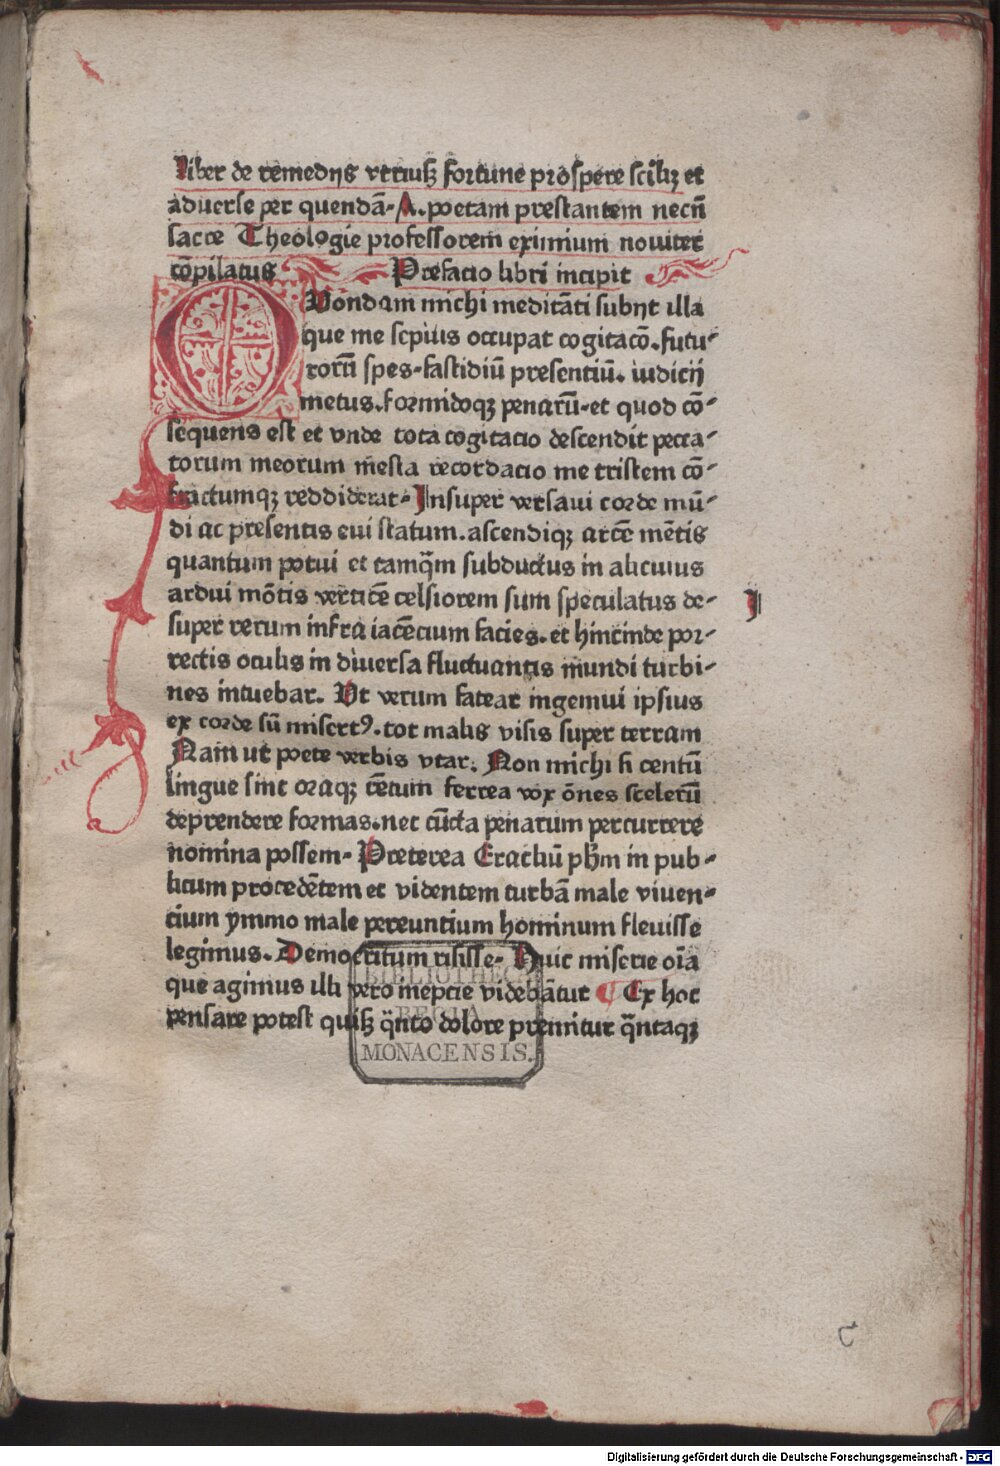 Liber de remedijs vtriusqȝ fortune prospere scilicȝ et
aduerse per quendā. A. poetam prestantem necnō
sacre Theologie professorem eximium nouiter
cōpilatus Prefacio libri incipit
QVondam michi meditāti subijt illa
que me sepius occupat cogitacō. futu⸗
rorū spes. fastidiū presentiū. iudicij
metus. formidoqȝ penarū. et quod cō⸗
sequens est et vnde tota cogitacio descendit pecca⸗
torum meorum mesta recordacio me tristem cō⸗
fractumqȝ reddiderat. Insuper versaui corde mū⸗
di ac presentis eui statum. ascendiqȝ arcē mētis
quantum potui et tamq̄m subductus in alicuius
ardui mōtis verticē celsiorem sum speculatus de⸗
super rerum infra iacēcium facies. et hincinde por⸗
rectis oculis in diuersa fluctuantis mundi turbi⸗
nes intuebar. Vt verum fatear ingemui ipsius
ex corde sū misertꝰ. tot malis visis super terram
Nam ut poete verbis vtar. Non michi si centū
lingue sint oraqȝ cētum ferrea vox ōnes scelerū
deprendere formas. nec cūcta penarum percurrere
nomina possem. Preterea Eraclitū phm in pub⸗
licum procedētem et videntem turbā male viuen⸗
cium ymmo male pereuntium hominum fleuisse
legimus. Democritum risisse. Huic miserie oīa
que agimus illi vero inepcie videbātur Ex hoc
pensare potest quisqȝ q̄nto dolore premitur q̄ntaqȝ
BIBLIOTHECA
REGIA
MONACENSIS.
Digitalisierung gefördert durch die Deutsche Forschungsgemeinschaft - DFG